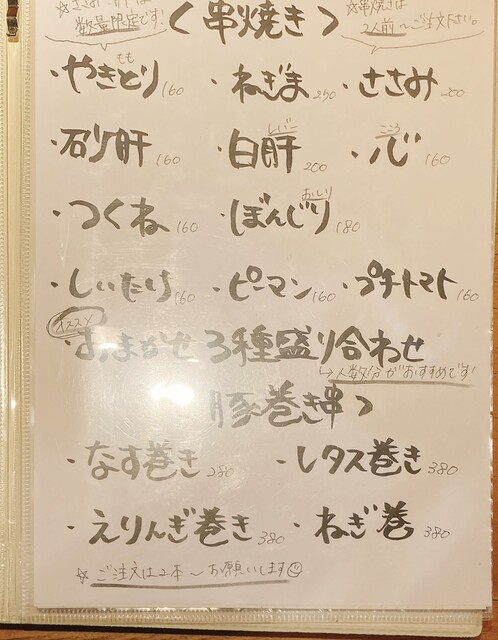 数量限定です!
〈串焼き〉
☆串焼きは
2人前〜ご注文下さい。
・やきとり もも 160 ・ねぎま 250 ・ささみ 200
・砂肝 160 ・白肝 レバー 200 ・心 こころ 160
・つくね 160 ・ぼんじり おしり 180
・しいたけ 160 ・ピーマン 160 ・プチトマト 160
オススメ
・おまかせ 3種盛り合わせ
→人数分がおすすめです!
豚巻き串〉
・なす巻き 280 ・レタス巻き 380
・えりんぎ巻き 380 ・ねぎ巻 380
☆ご注文は2本〜お願いします